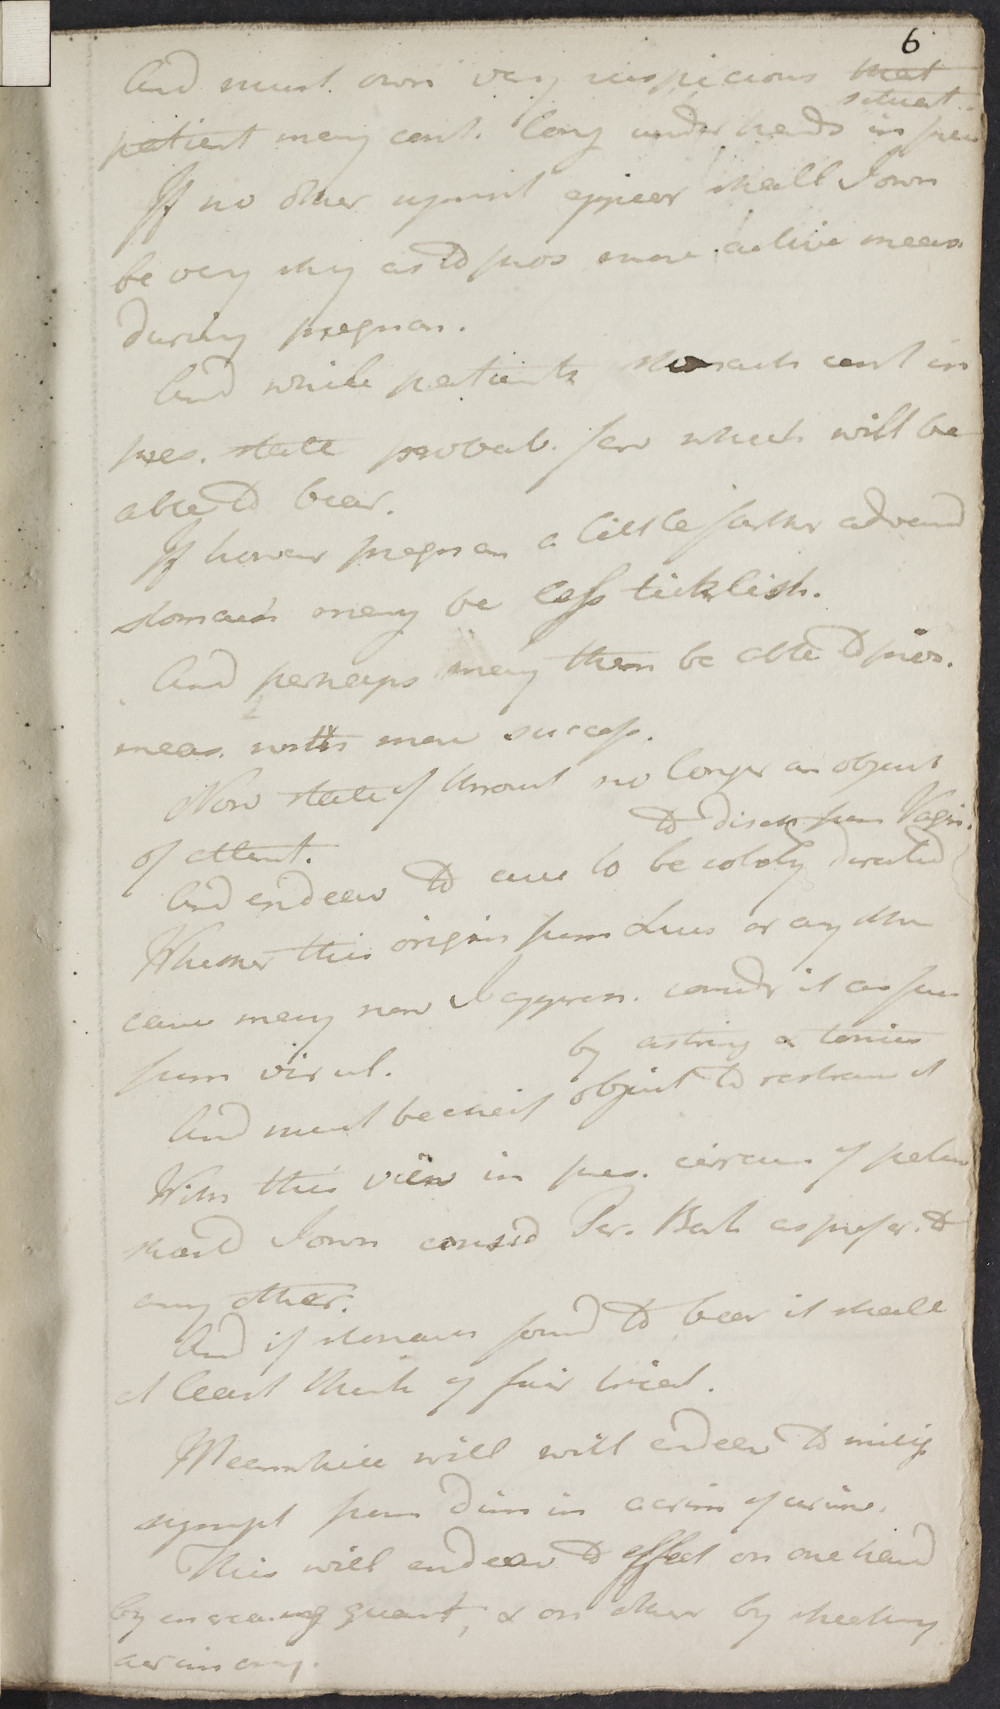 6
And must own very suspicious that
situat.
patient may cont. long under hands in
If no other symptom appear shall I own
be very shy as to pres more active meas.
during pregnan.
And while patients stomach cont in
pres. state probab. few which will be
able to bear.
If however pregnan a little farther advanced
stomach may be less ticklish.
And perhaps may then be able to pres.
meas. with more success.
Now state of throat no longer an object
of attent.
to disch from Vagin.
And endeav to cure to be solely directed
Whether this origin from Lues or any other
cause may now I apprehen. consider it as free
from virul.
by astring & tonics
And must be chief object to restrain it
With this view in pres. circum of patient
should I own consid Per. Bark as prefer. to
any other.
And if stomach found to bear it shall
at least think of fair trial.
Meanwhile will will endeav to mitig
sympt from dimin acrim of urine.
This will endeav to effect on one hand
by increasing quant, & on other by sheathing
acrimony.